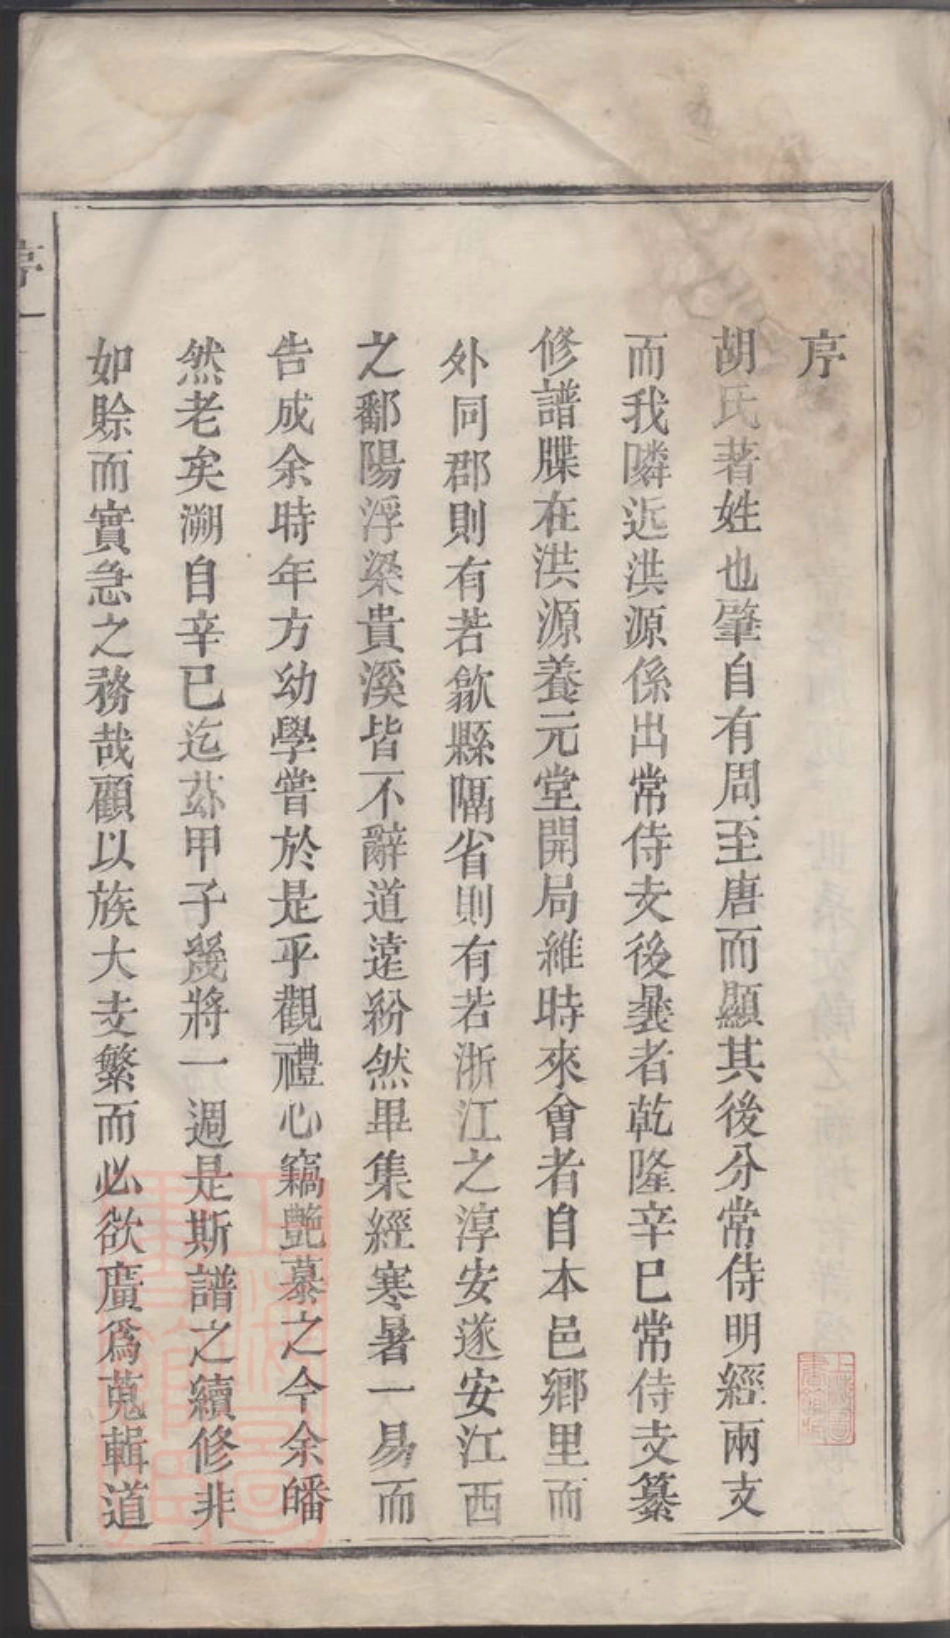 序
胡氏著姓也肇自有周至唐而顯其後分常侍明經兩支
而我隣近洪源係出常侍支後曩者乾隆辛巳常侍支纂
修譜牒在洪源養元堂開局維時來會者自本邑鄉里而
外同郡則有若歙縣隔省則有若浙江之淳安遂安江西
之鄱陽浮梁貴溪皆不辭道遠紛然畢集經寒暑一易而
告成余時年方幼學嘗於是乎觀禮心竊艷慕之今余皤
然老矣溯自辛巳迄茲甲子幾將一週是斯譜之續修非
如賒而實急之務哉顧以族大支繁而必欲廣爲蒐輯道
序 一